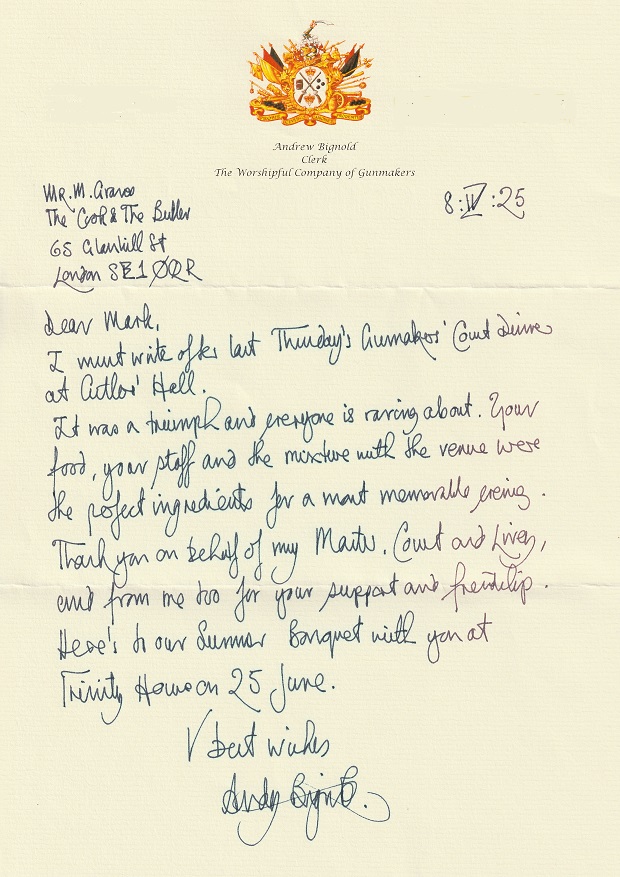 Andrew Bignold
Clerk
The Worshipful Company of Gunmakers
8:IV:25
Mr. M. Graves
The Cook & The Butler
65 Glasshill St
London SE1 0QR
Dear Mark,
I must write after last Thursday's Gunmakers' Court Dinner
at Cutlers' Hall.
It was a triumph and everyone is raving about. Your
food, your staff and the mixture with the venue were
the perfect ingredients for a most memorable evening.
Thank you on behalf of my Master, Court and Livery,
and from me too for your support and friendship.
Here's to our Summer Banquet with you at
Trinity House on 25 June.
V best wishes
Andy Bignold.